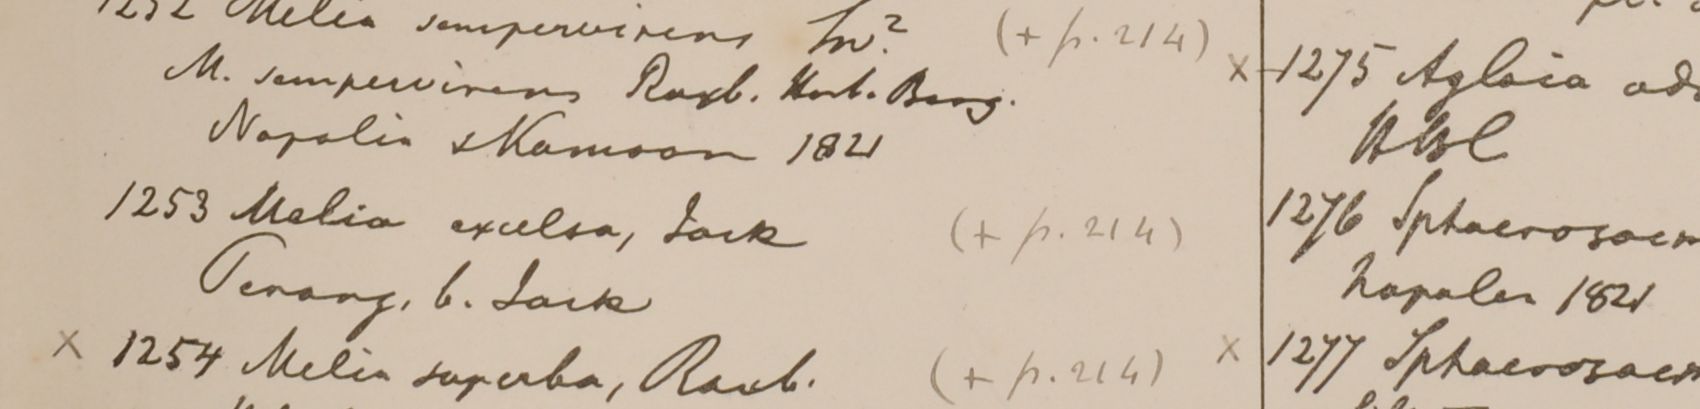 1252 Melia sempervirens Sw.? (+ p. 214)
M. sempervirens Roxb. Hort. Beng.
Napalia & Kamoon 1821
1253 Melia excelsa, Jack (+ p. 214)
Penang, b. Jack
x 1254 Melia superba, Roxb. (+ p. 214)
x 1275 Aglaia
HBC
1276 Sphaerosacm
Napalia 1821
x 1277 Sphaerosacm